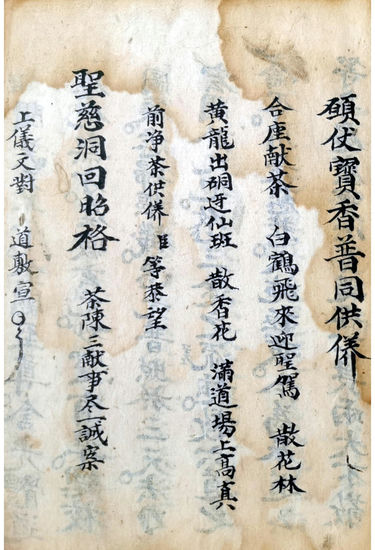 願仗寶香普同供養
合座献茶 白鶴飛來迎聖駕 散花林
黄龍出硐迓仙班 散香花 滿道場上高真
前净茶供養臣等恭望
聖慈洞回昭格 茶陳三献事尽一誠案
上儀文對 道敷宣